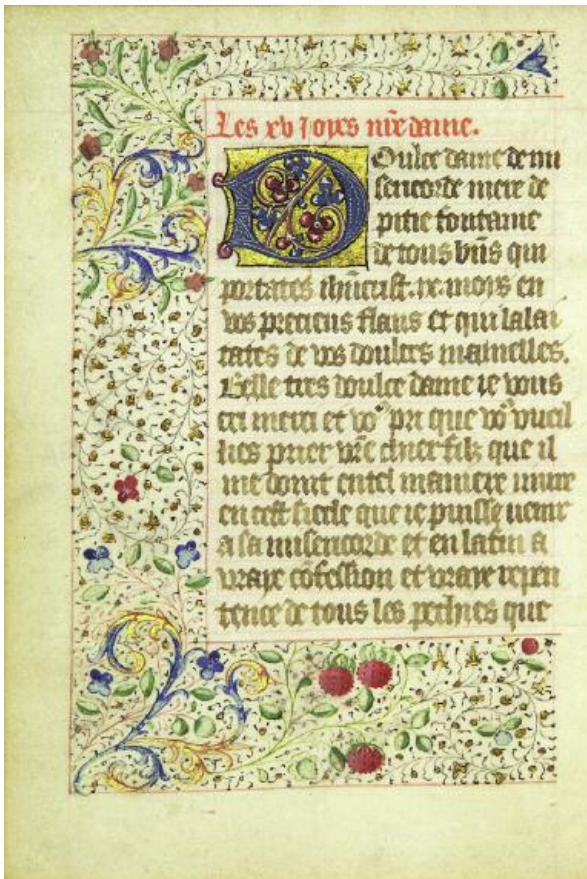 Les xv joyes nr̄e dame.
Doulce dame de mi
sericorde mere de
pitie fontaine
de tous biēs qui
portates ihūcrist .ix. moys en
vos precieus flans et qui lalai
tates de vos doulces mamelles.
Belle tres doulce dame ie vous
cri merci et voꝰ pri que voꝰ vueil
lies prier vr̄e chier filz que il
me doint en tel maniere viure
en cest siecle que ie puisse uenir
a sa misericorde et en la fin a
vraye cōfession et vraye repen
tence de tous les pechies que